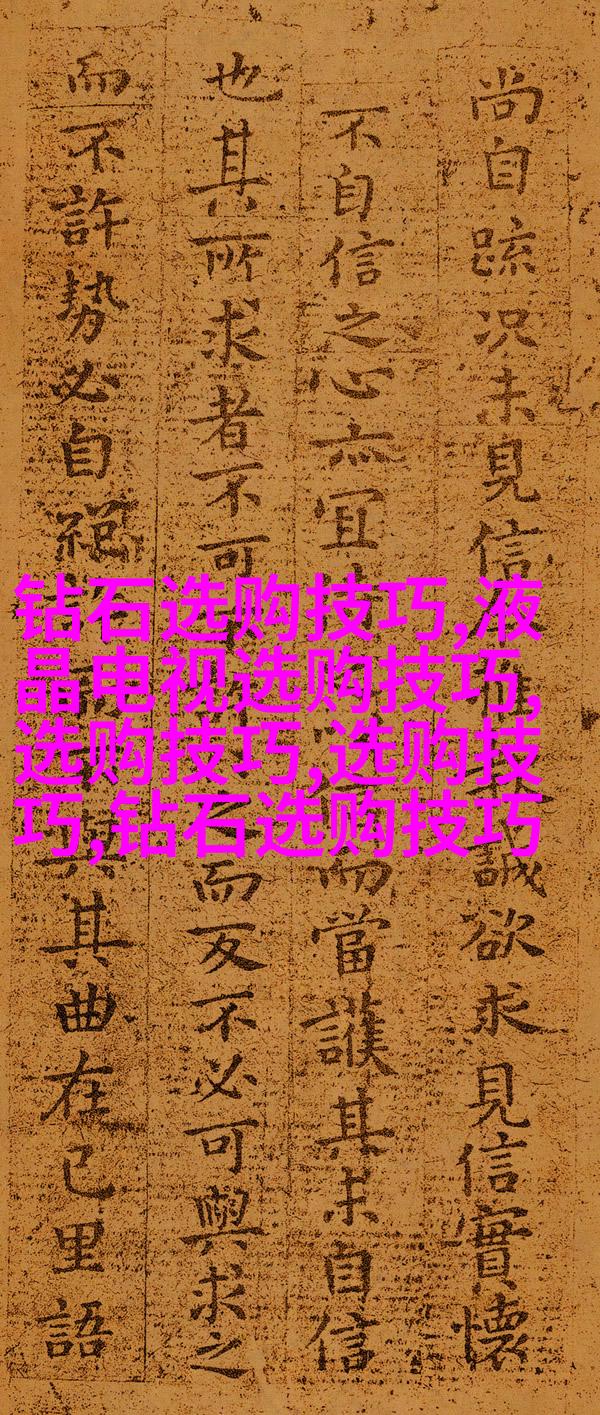 尚自踈況未見信誠欲求見信實懷
不自信之心亦宜而當護其未自信
也其所求者不可而反不必可與求之
而不許勢必自絕與其曲在己里語
钻石选购技巧,液
晶电视选购技巧,
选购技巧,选购技
巧,钻石选购技巧